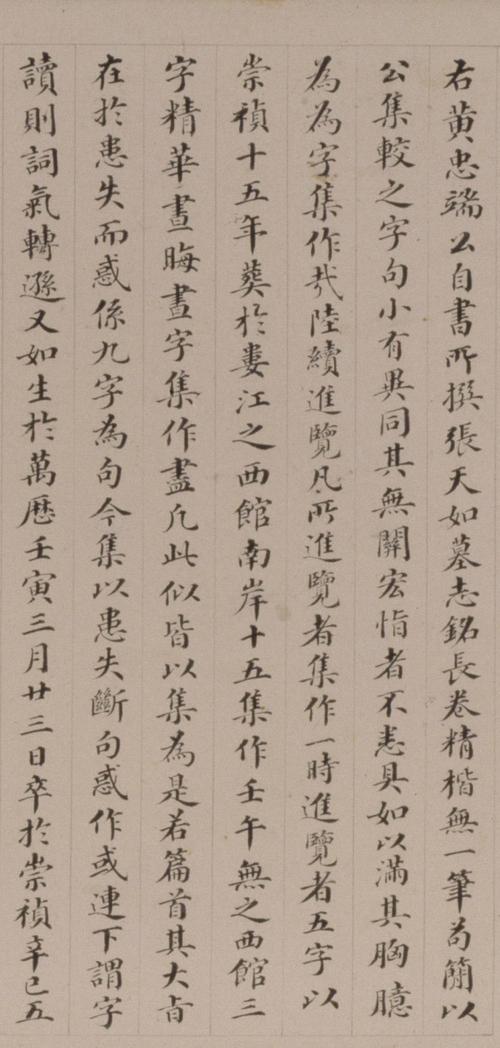 右黃忠端公自書所撰張天如墓志銘長卷精楷無一筆苟簡以
公集較之字句小有異同其無關宏恉者不悉具如以滿其胸臆
為為字集作哉陸續進覽凡所進覽者集作一時進覽者五字以
崇禎十五年葬於婁江之西館南岸十五集作壬午無之西館三
字精華晝晦晝字集作盡凡此似皆以集為是若篇首其大旨
在於患失而惑係九字為句今集以患失斷句惑作或連下謂字
讀則詞氣轉遜又如生於萬歷壬寅三月廿三日卒於崇禎辛巳五